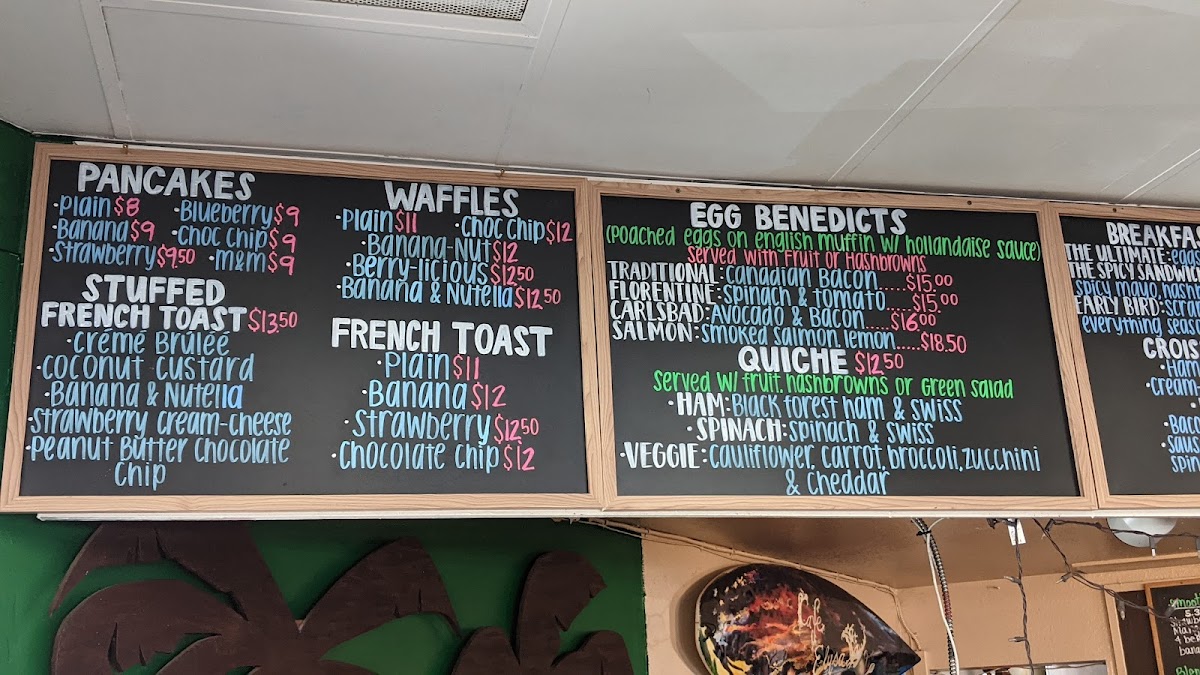 PANCAKES
·Plain $8 ·Blueberry $9
·Banana $9 ·Choc Chip $9
·Strawberry $9.50 ·M&M $9
STUFFED
FRENCH TOAST $13.50
·Créme Brulee
·Coconut Custard
·Banana & Nutella
·Strawberry Cream-Cheese
·Peanut Butter Chocolate
Chip
WAFFLES
·Plain $11 ·Choc Chip $12
·Banana-Nut $12
·Berry-licious $12.50
·Banana & Nutella $12.50
FRENCH TOAST
·Plain $11
·Banana $12
·Strawberry $12.50
·Chocolate Chip $12
EGG BENEDICTS
(Poached eggs on english muffin w/ hollandaise sauce)
Served with Fruit or Hashbrowns
TRADITIONAL: Canadian Bacon.....$15.00
FLORENTINE: Spinach & tomato....$15.00
CARLSBAD: Avocado & Bacon.....$16.00
SALMON: smoked salmon, lemon.....$18.50
QUICHE $12.50
Served w/ fruit, hashbrowns or Green salad
·HAM: Black forest ham & swiss
·SPINACH: spinach & swiss
·VEGGIE: cauliflower, carrot, broccoli, zucchini
& cheddar
BREAKFAS
THE ULTIMATE: eggs
THE SPICY SANDWIC
spicy mayo, hash
EARLY BIRD: scra
everything seas
CROIS
·Ham
·Cream
·Baco
·Saus
spin
Life